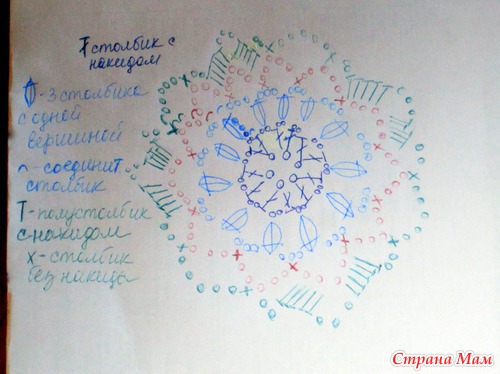 Ŧ столбик с
накидом
- 3 столбика
с одной
вершиной
⌢ - соединит.
столбик
Т - полустолбик
с накидом
х - столбик
без накида
Страна Мам